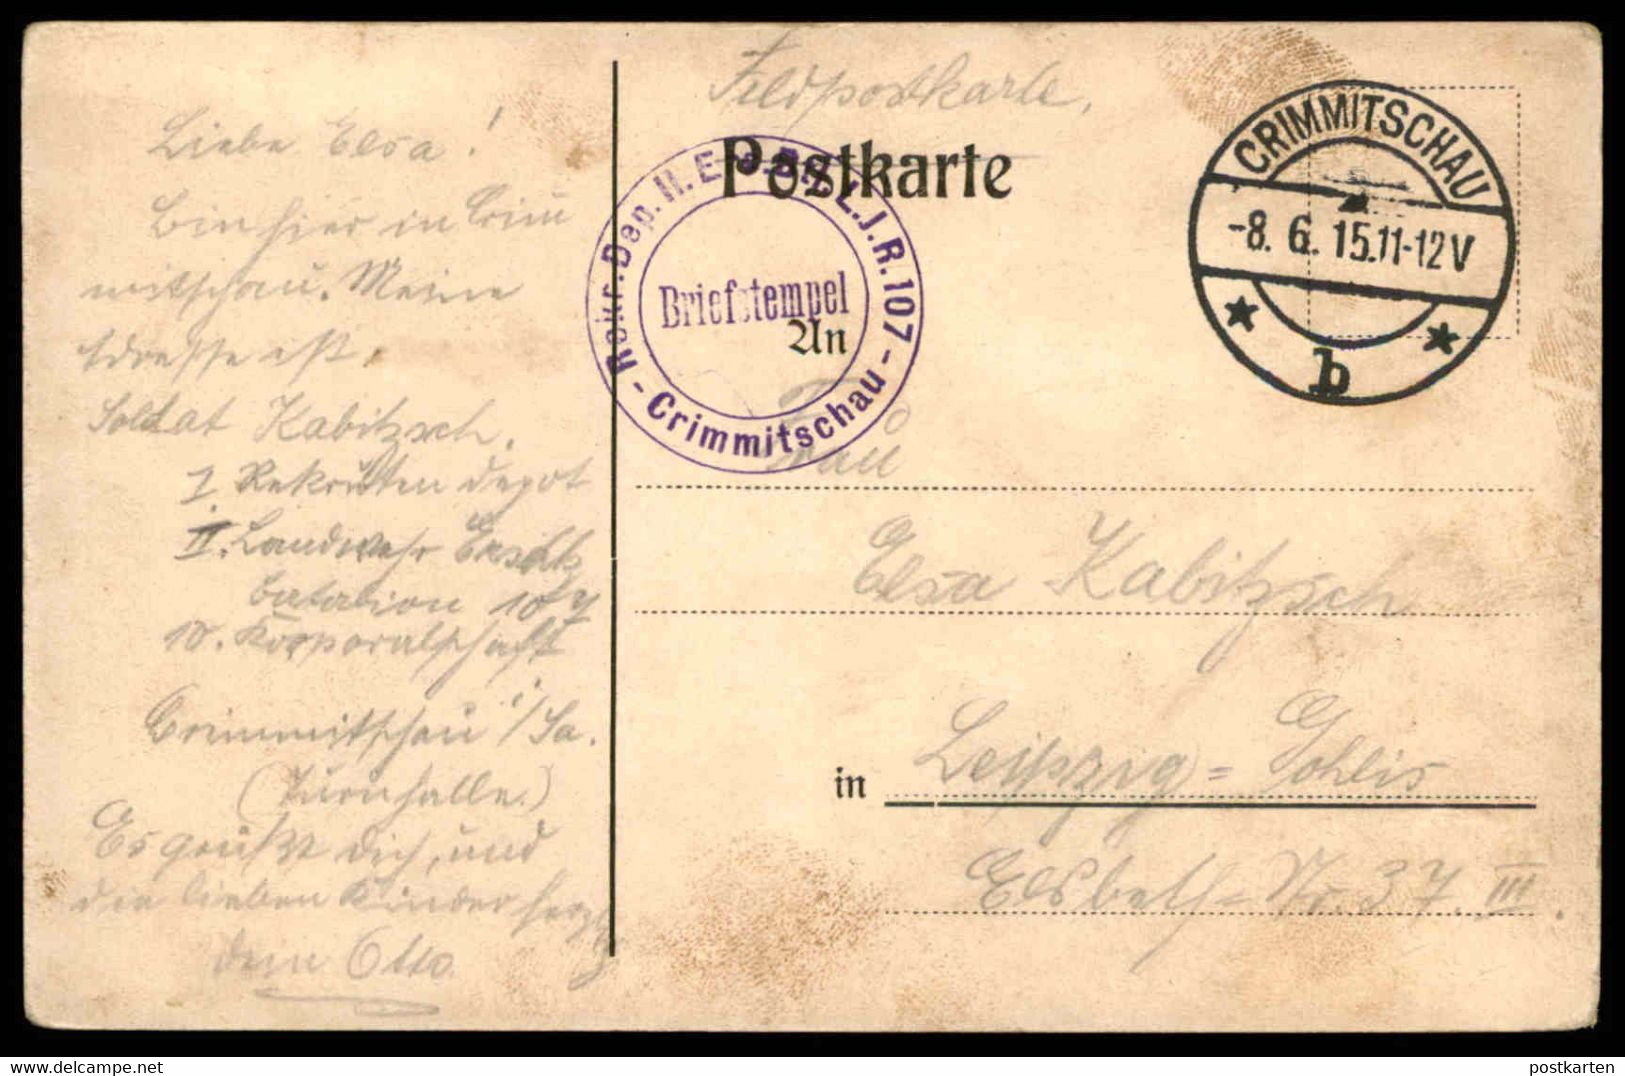 Feldpostkarte.
Postkarte
CRIMMITSCHAU
-8. 6. 15.11-12V
b
Rekr. Dep. II. E L.J.R. 107 - Crimmitschau -
Briefstempel
An
Frau
Elsa Kabitzsch
in Leipzig=Gohlis
Elsbeth= Nr. 37. III.
Liebe Elsa!
Bin hier in Crim
mitschau. Meine
Adresse ist.
Soldat Kabitzsch.
I. Rekruten depot
II. Landwehr Ersatz
Batalion 107
10. Korporalschaft
Crimmitschau i/Sa.
(Turnhalle.)
Es grüßt dich, und
die lieben Kinder herzl
dein Otto
postkarten